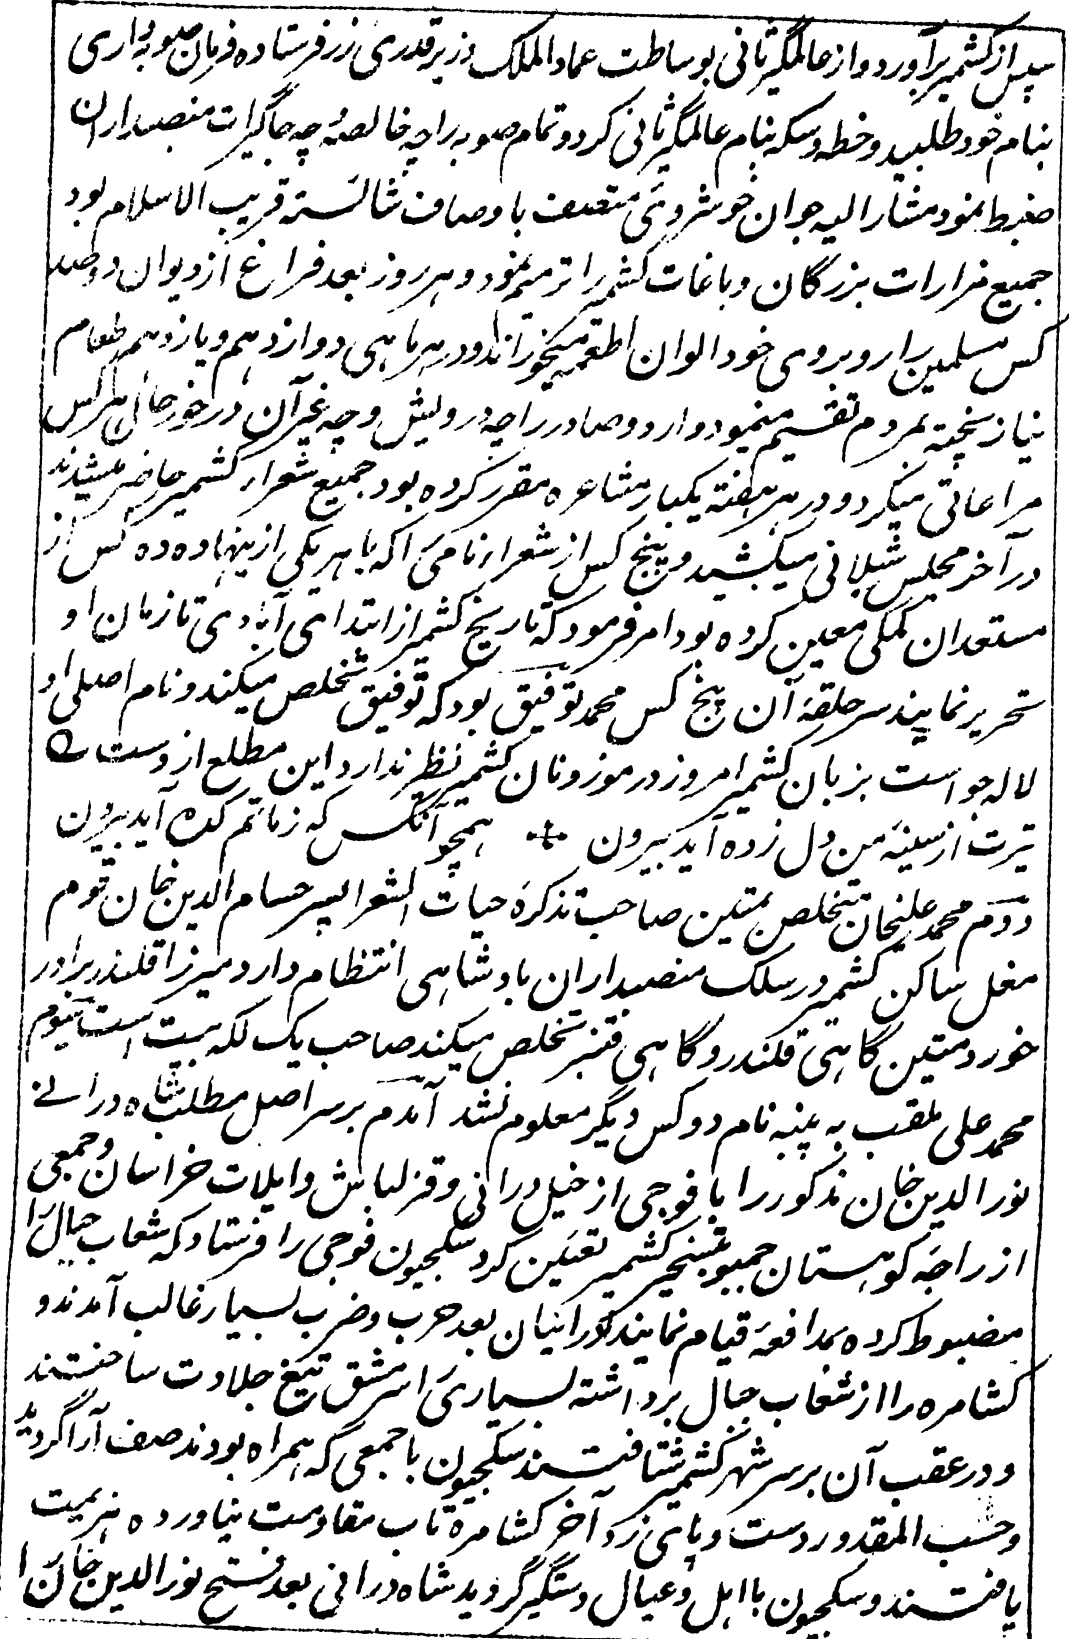 سپس از کشمیر برآورد و از عالمگیر ثانی بوساطت عماد الملک وزیر قدری زر فرستاده فرمان صوبه داری
بنام خود طلبید و خطبه و سکه بنام عالمگیر ثانی کرد و تمام صوبه را چه خالصه و چه جاگیرات منصبداران
ضبط نمود مشار الیه جوان خوشروئی متصف باوصاف شائسته قریب الاسلام بود
جمیع مزارات بزرگان و باغات کشمیر را ترمیم نمود و هر روز بعد فراغ از دیوان دو صد
کس مسلمین را روبروی خود الوان اطعمه میخوراند و در هر ماهی دوازدهم و یازدهم طعام
نیاز پخته بمردم تقسیم مینمود و وارد و صادر را چه درویش و چه غیر آن در خور حال هر کس
مراعاتی میکرد و در هر هفته یکبار مشاعره مقرر کرده بود جمیع شعراء کشمیر حاضر میشدند
در آخر مجلس شیلانی میکشید و پنج کس از شعراء نامی را که با هر یکی از ینها ده ده کس از
مستعدان کمکی معین کرده بود امر فرمود که تاریخ کشمیر از ابتدای آبادی تا زمان او
تحریر نمایند سر حلقهٔ آن پنج کس محمد توفیق بود که توفیق تخلص میکند و نام اصلی او
لاله جو است بزبان کشمیر امروز در موزونان کشمیر نظیر ندارد این مطلع از وست
تیرت از سینهٔ من دل زده آید بیرون ÷ همچو آنکس که ز ماتم کده آید بیرون
دوم محمد علیخان متخلص بمتین صاحب تذکرهٔ حیات الشعرا پسر حسام الدین خان قوم
مغل ساکن کشمیر در سلک منصبداران بادشاهی انتظام دارد میرزا قلندر برادر
خورد متین گاهی قلندر و گاهی قنبر تخلص میکند صاحب یک لکه بیت است سیوم
محمد علی ملقب به پنبه نام دو کس دیگر معلوم نشد آمدم بر سر اصل مطلب شاه درانی
نور الدین خان مذکور را با فوجی از خیل درانی و قزلباش و ایلات خراسان و جمعی
از راجهٔ کوهستان جمبو بتسخیر کشمیر تعین کرد سکجیون فوجی را فرستاد که شعاب جبال را
مضبوط کرده بمدافعه قیام نمایند درانیان بعد حرب و ضرب بسیار غالب آمدند و
کشامره را از شعاب جبال برداشته بسیاری را سر مشق تیغ جلادت ساختند
و در عقب آن بر سر شهر کشمیر شتافتند سکجیون با جمعی که همراه بودند صف آرا گردید
و حسب المقدور دست و پای زد آخر کشامره تاب مقاومت نیاورده هزیمت
یافتند و سکجیون با اهل و عیال دستگیر گردید شاه درانی بعد فتح نور الدین خان را